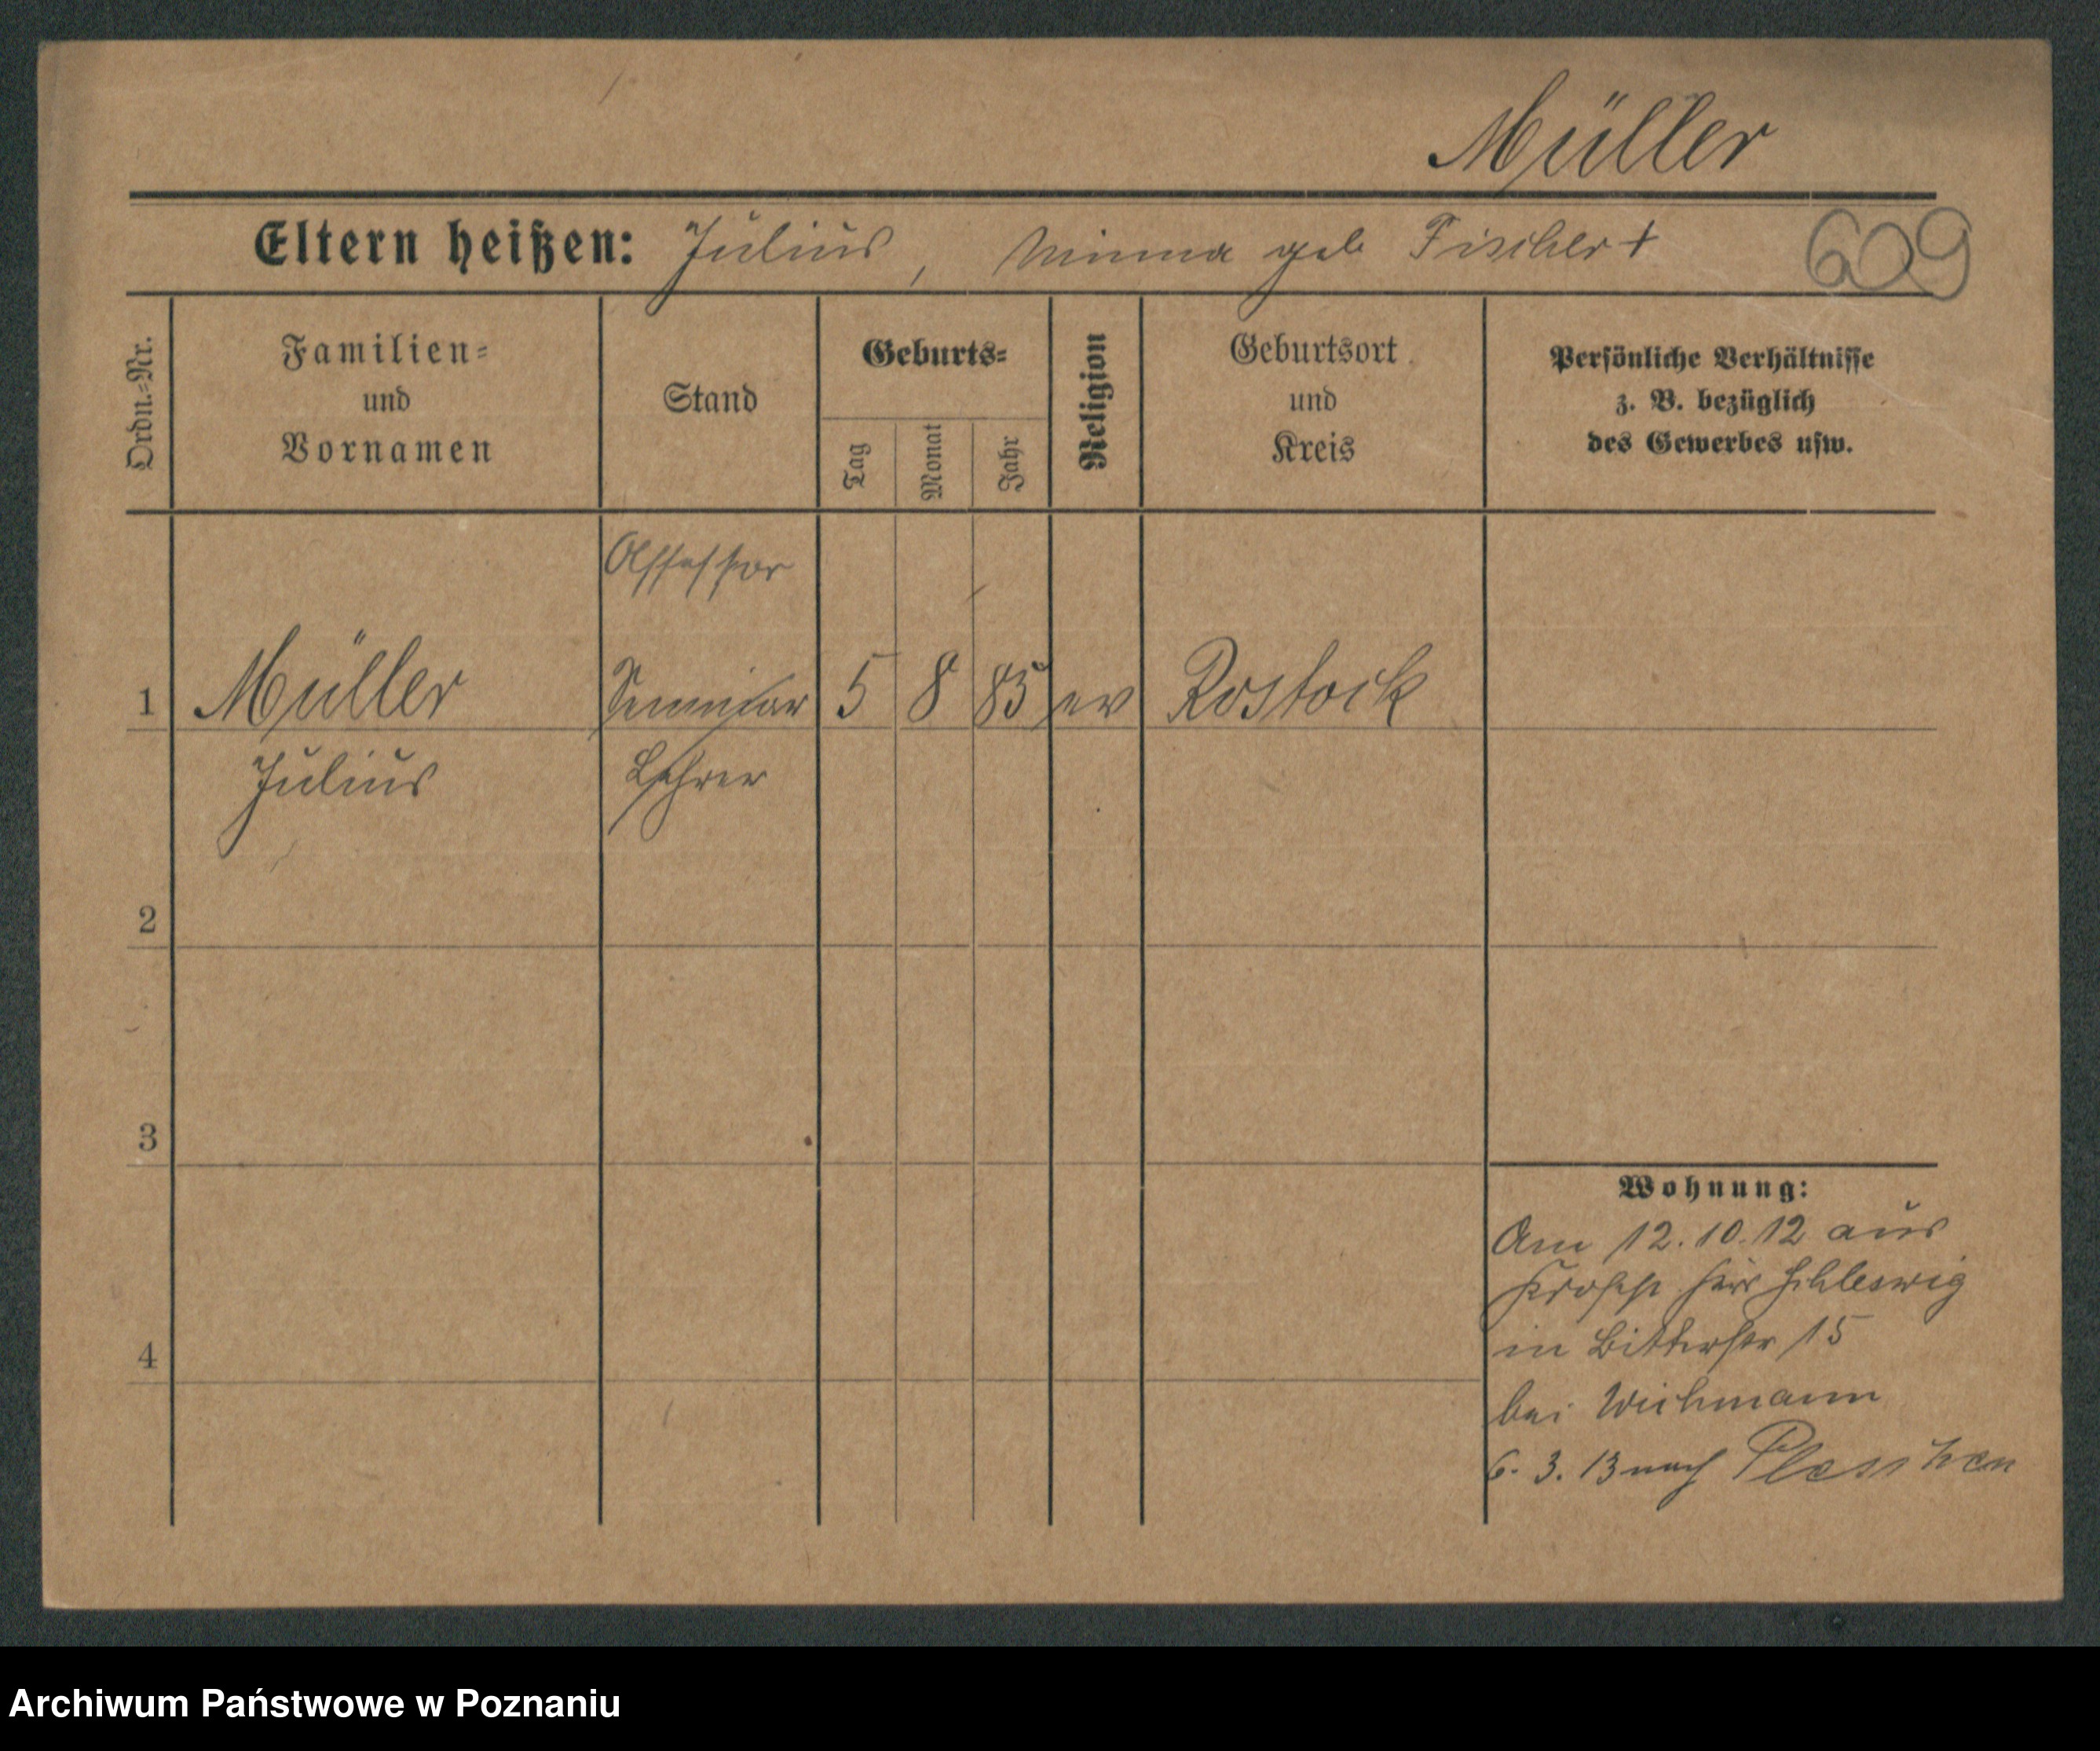 Müller
Eltern heißen: Julius, Minna geb Fischer +
609
Ordn.-Nr.
Familien-
und
Vornamen
Stand
Geburts-
Tag
Monat
Jahr
Religion
Geburtsort
und
Kreis
Persönliche Verhältnisse
z. B. bezüglich
des Gewerbes usw.
Assessor
1 Müller Seminar 5 8 85 ev Rostock
Julius Lehrer
2
3
4
Wohnung:
Am 12.10.12 aus
Kropp Schleswig
in Bitterstr 15
bei Wichmann
6. 3. 13 nach Pleschen
Archiwum Państwowe w Poznaniu